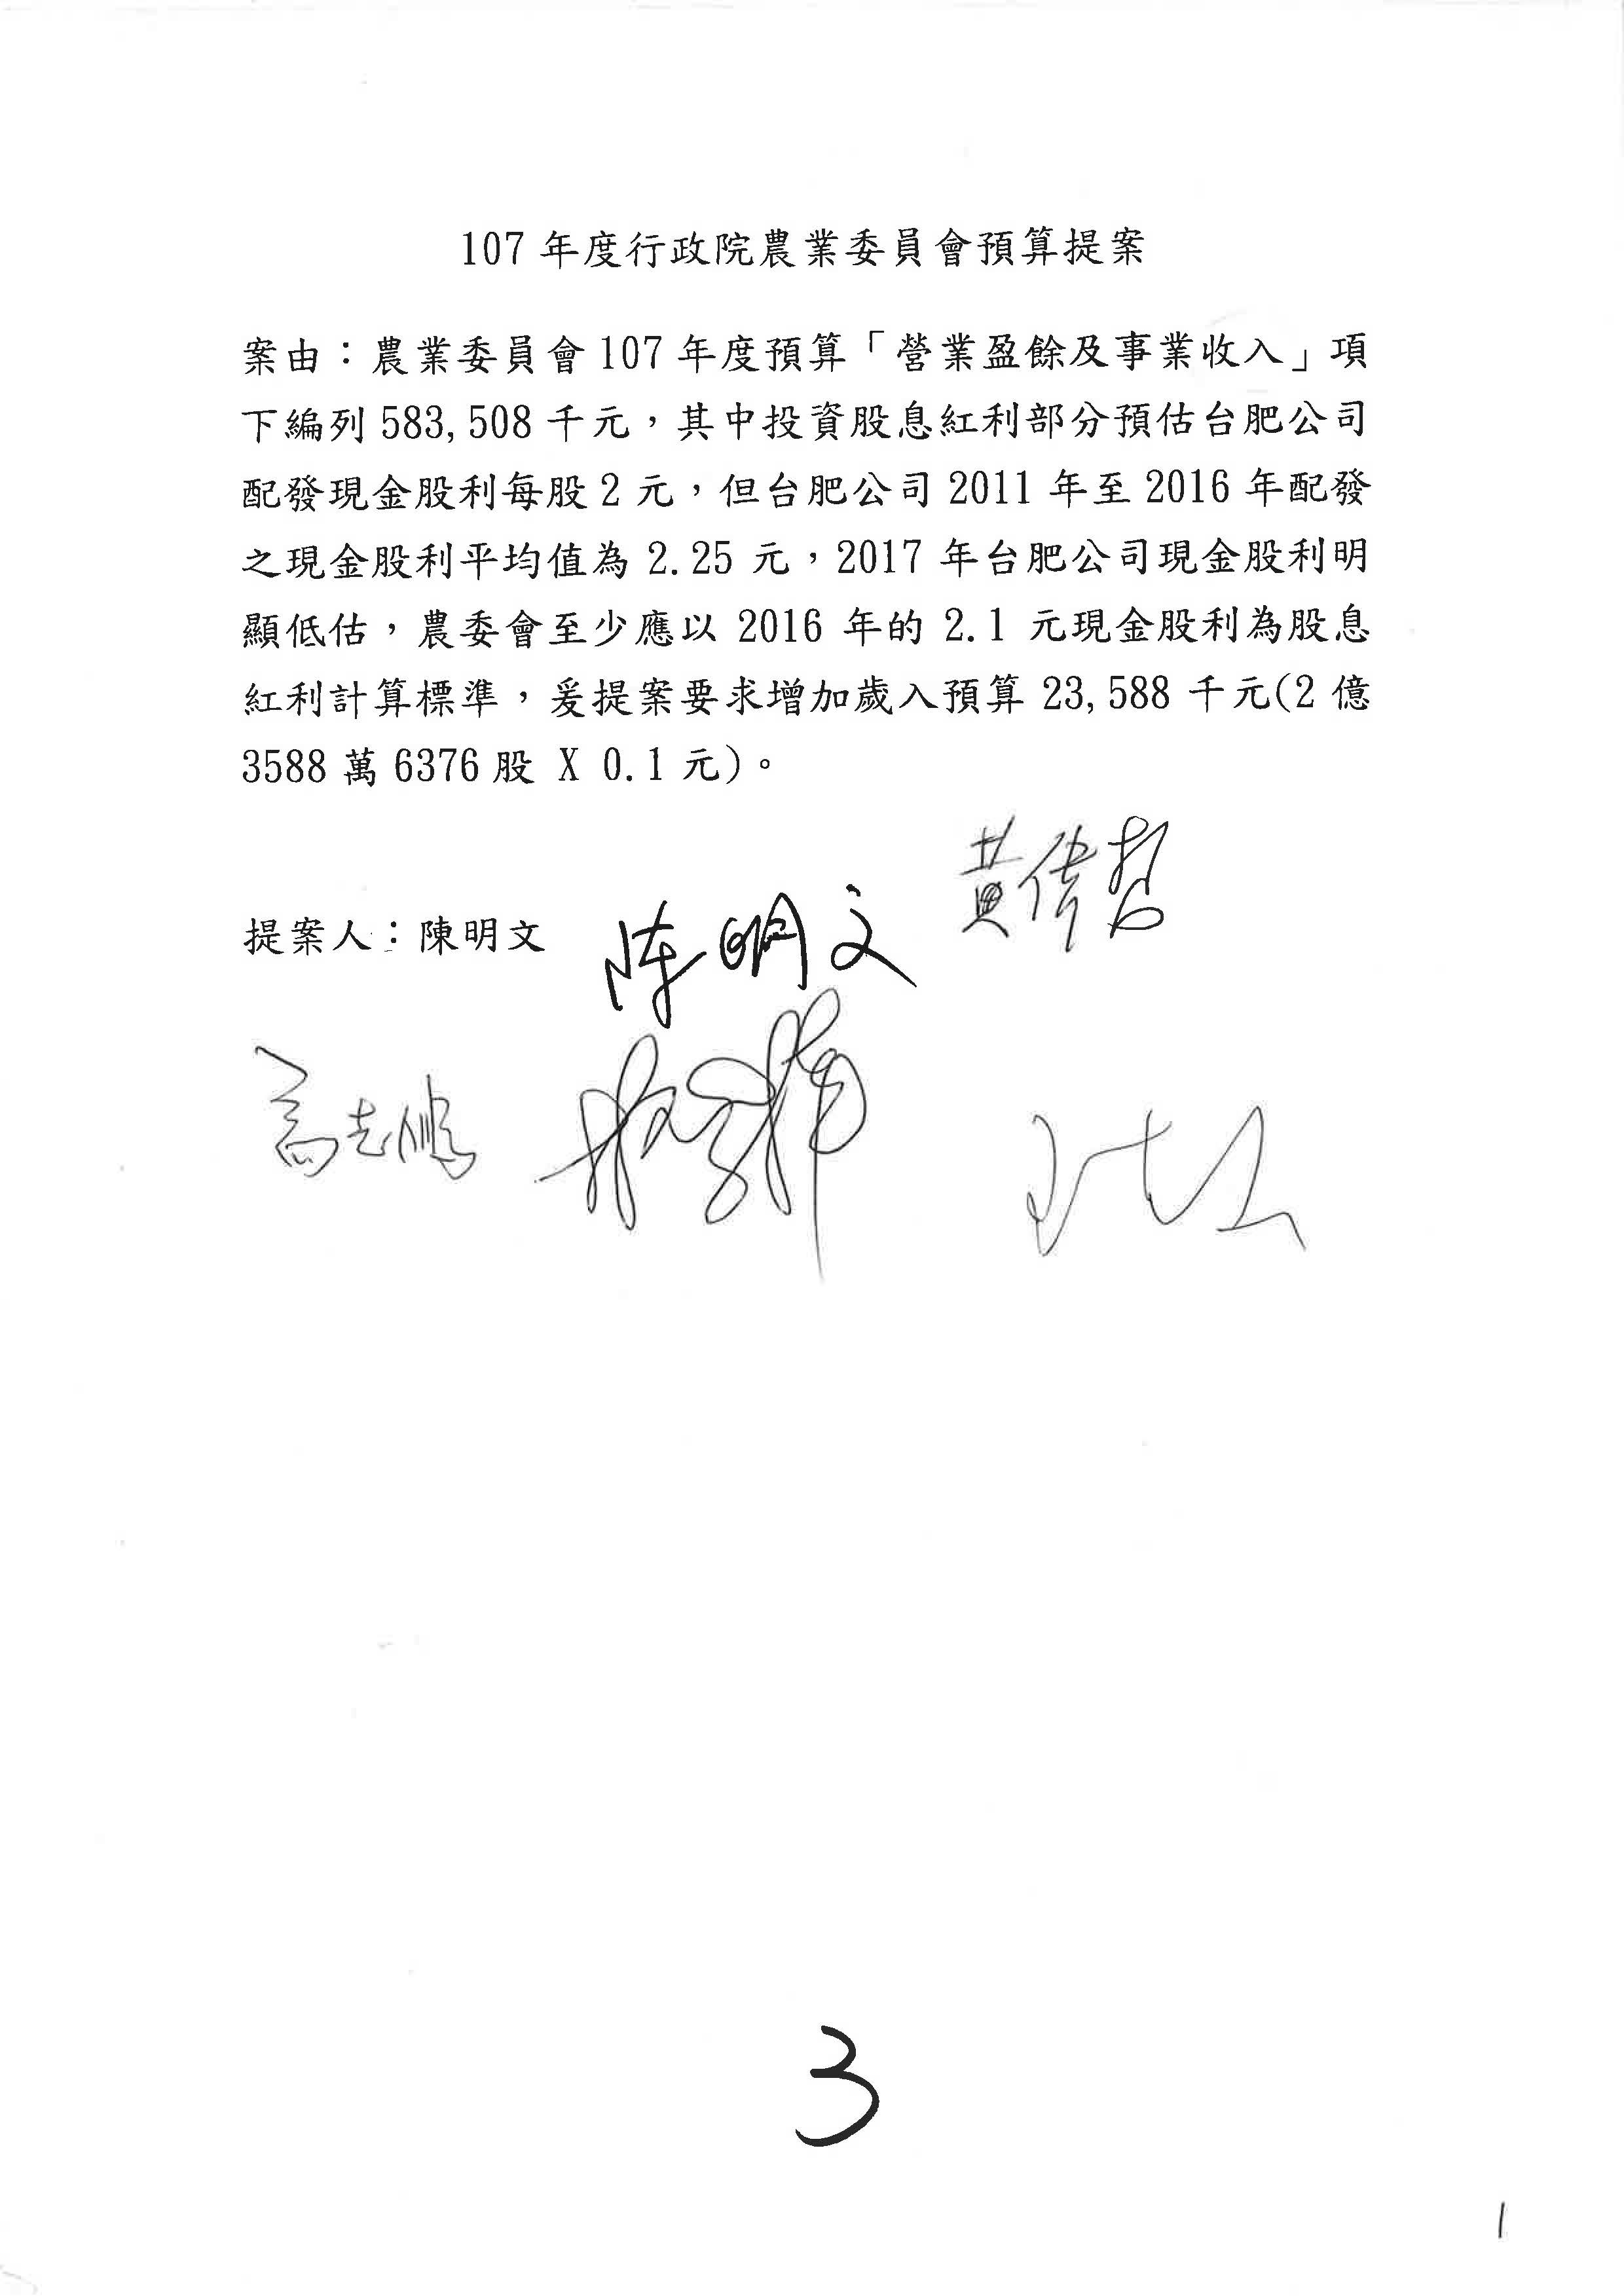 107 年度行政院農業委員會預算提案
案由：農業委員會 107 年度預算「營業盈餘及事業收入」項
下編列 583,508 千元，其中投資股息紅利部分預估台肥公司
配發現金股利每股 2 元，但台肥公司 2011 年至 2016 年配發
之現金股利平均值為 2.25 元，2017 年台肥公司現金股利明
顯低估，農委會至少應以 2016 年的 2.1 元現金股利為股息
紅利計算標準，爰提案要求增加歲入預算 23,588 千元(2 億
3588 萬 6376 股 X 0.1 元)。
黃偉哲
提案人：陳明文 陈明文
高志鵬
3
1